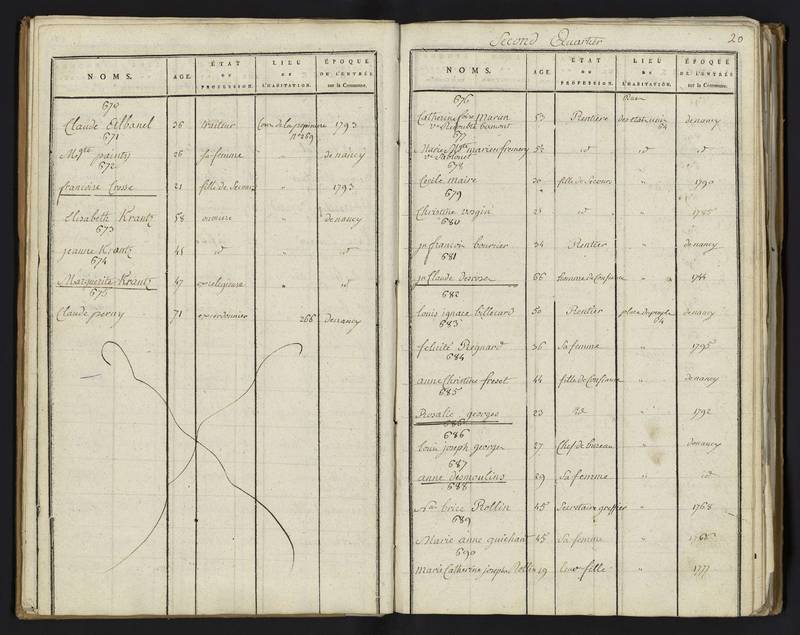 NOMS. AGE. ÉTAT OU PROFESSION. LIEU DE L'HABITATION. ÉPOQUE DE L'ENTRÉE sur la Commune.
670
Claude Albanel 36 traiteur Cour de la pepiniere n° 269 1793
671
Mgte paintz 26 sa femme " de nancy
672
francoise Crosse 21 fille de Secours " 1793
Elisabeth Krantz 58 ouvriere " de nancy
673
jeanne Krantz 41 id " id
674
Marguerite Krantz 47 exreligieuse " id
675
Claude perny 71 excordonnier 266 de nancy
Second Quartier 20
NOMS. AGE. ÉTAT OU PROFESSION. LIEU DE L'HABITATION. ÉPOQUE DE L'ENTRÉE sur la Commune.
676
Catherine Marin 53 Rentiere des etats unis 64 de nancy
677
Marie 52 id id id
678
Cecile maire 30 fille de Secours " 1790
679
Christine 21 id " 1785
680
jn francois bourier 34 Rentier " de nancy
681
jn Claude 66 homme de Confiance " 1744
682
Louis ignace billecard 50 Rentier place du peuple de nancy
683
felicité Regnard 36 Sa femme " 1795
684
anne Christine fresot 44 fille de Confiance " de nancy
685
Rosalie georges 23 id " 1792
686
686
louis joseph georges 27 Chef de bureau " de nancy
687
anne desmoulins 29 Sa femme " id
688
Nas brice Rollin 45 Secretaire greffier " 1768
689
Marie anne guichard 45 Sa femme " 1768
690
Marie Catherine josephe Rollin 19 leur fille " 1777